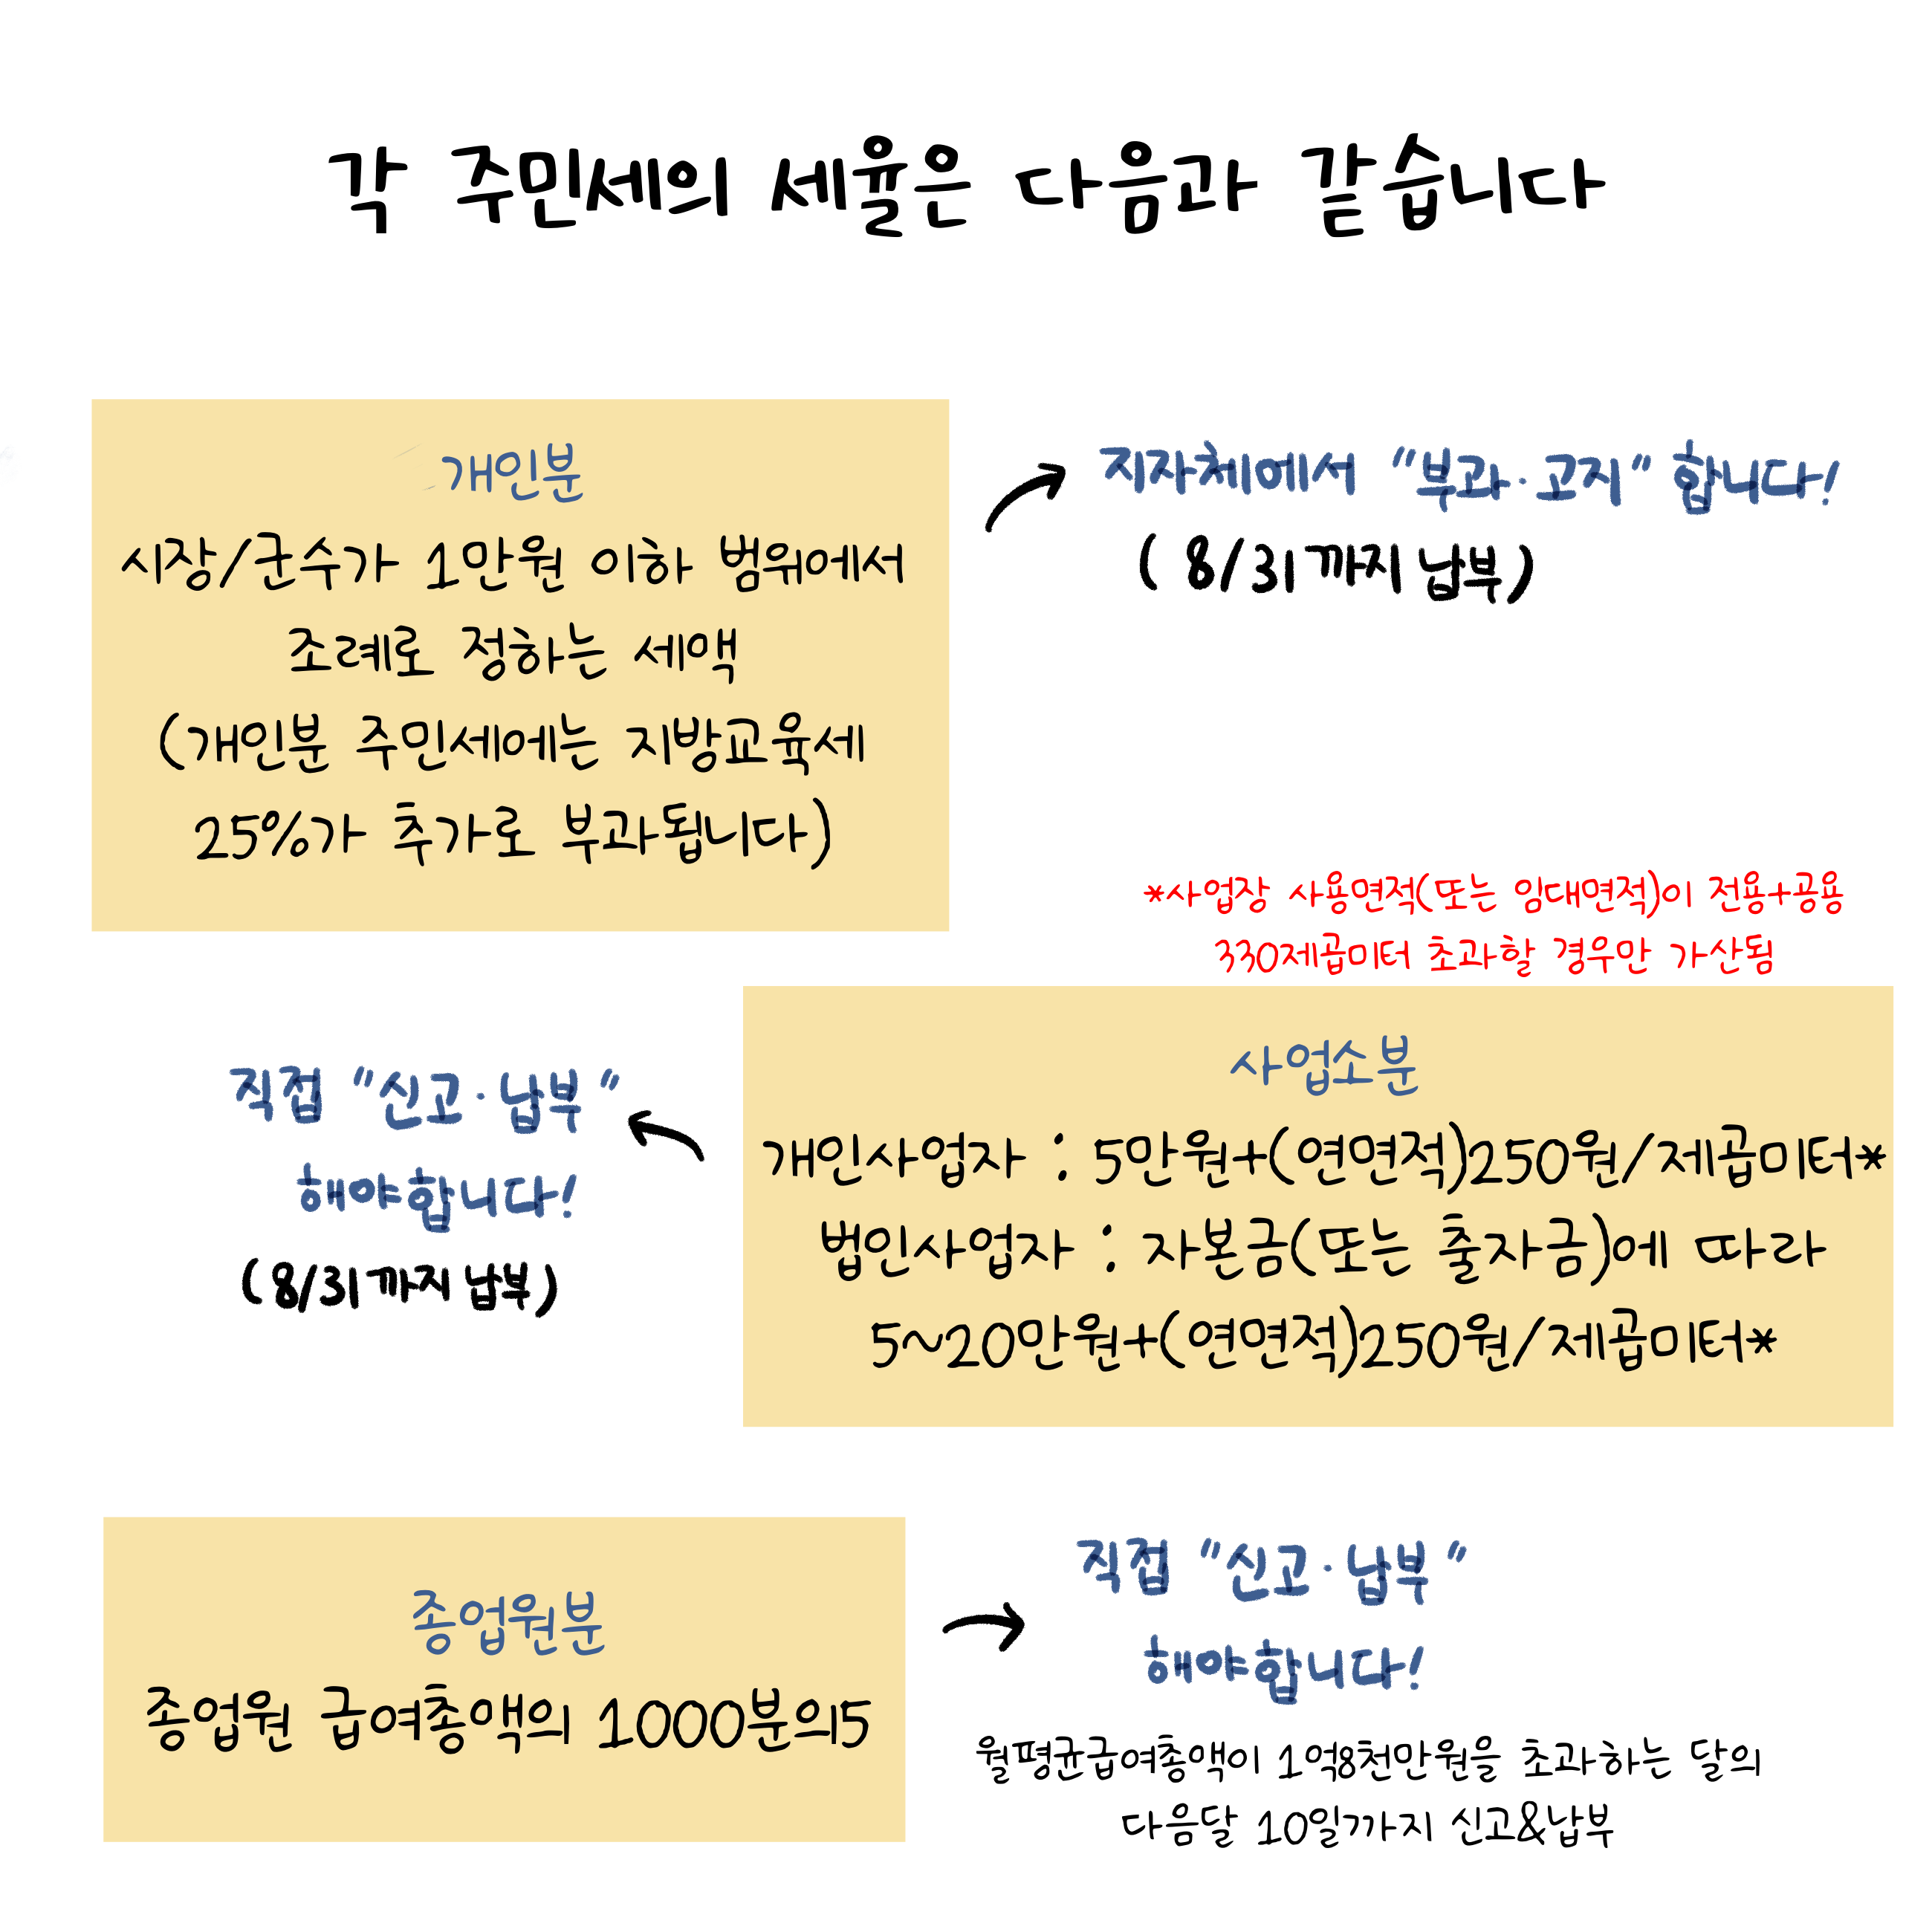 각 주민세의 세율은 다음과 같습니다
개인분
시장/군수가 1만원 이하 범위에서
조례로 정하는 세액
(개인분 주민세에는 지방교육세
25%가 추가로 부과됩니다)
지자체에서 "부과·고지" 합니다!
(8/31까지 납부)
*사업장 사용면적(또는 임대면적)이 전용+공용
330제곱미터 초과할 경우만 가산됨
사업소분
개인사업자 : 5만원+(연면적)250원/제곱미터*
법인사업자 : 자본금(또는 출자금)에 따라
5~20만원+(연면적)250원/제곱미터*
직접 "신고·납부"
해야합니다!
(8/31까지 납부)
종업원분
종업원 급여총액의 1000분의5
직접 "신고·납부"
해야합니다!
월평균급여총액이 1억8천만원을 초과하는 달의
다음달 10일까지 신고&납부